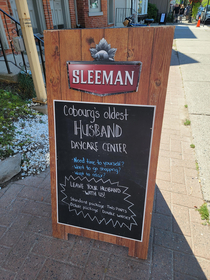 SLEEMAN
Cobourg's oldest
HUSBAND
DAYCARE CENTER
Need time to yourself?
Want to go shopping?
Want to relax?
LEAVE YOUR HUSBAND
WITH US!
Standard package
Deluxe package